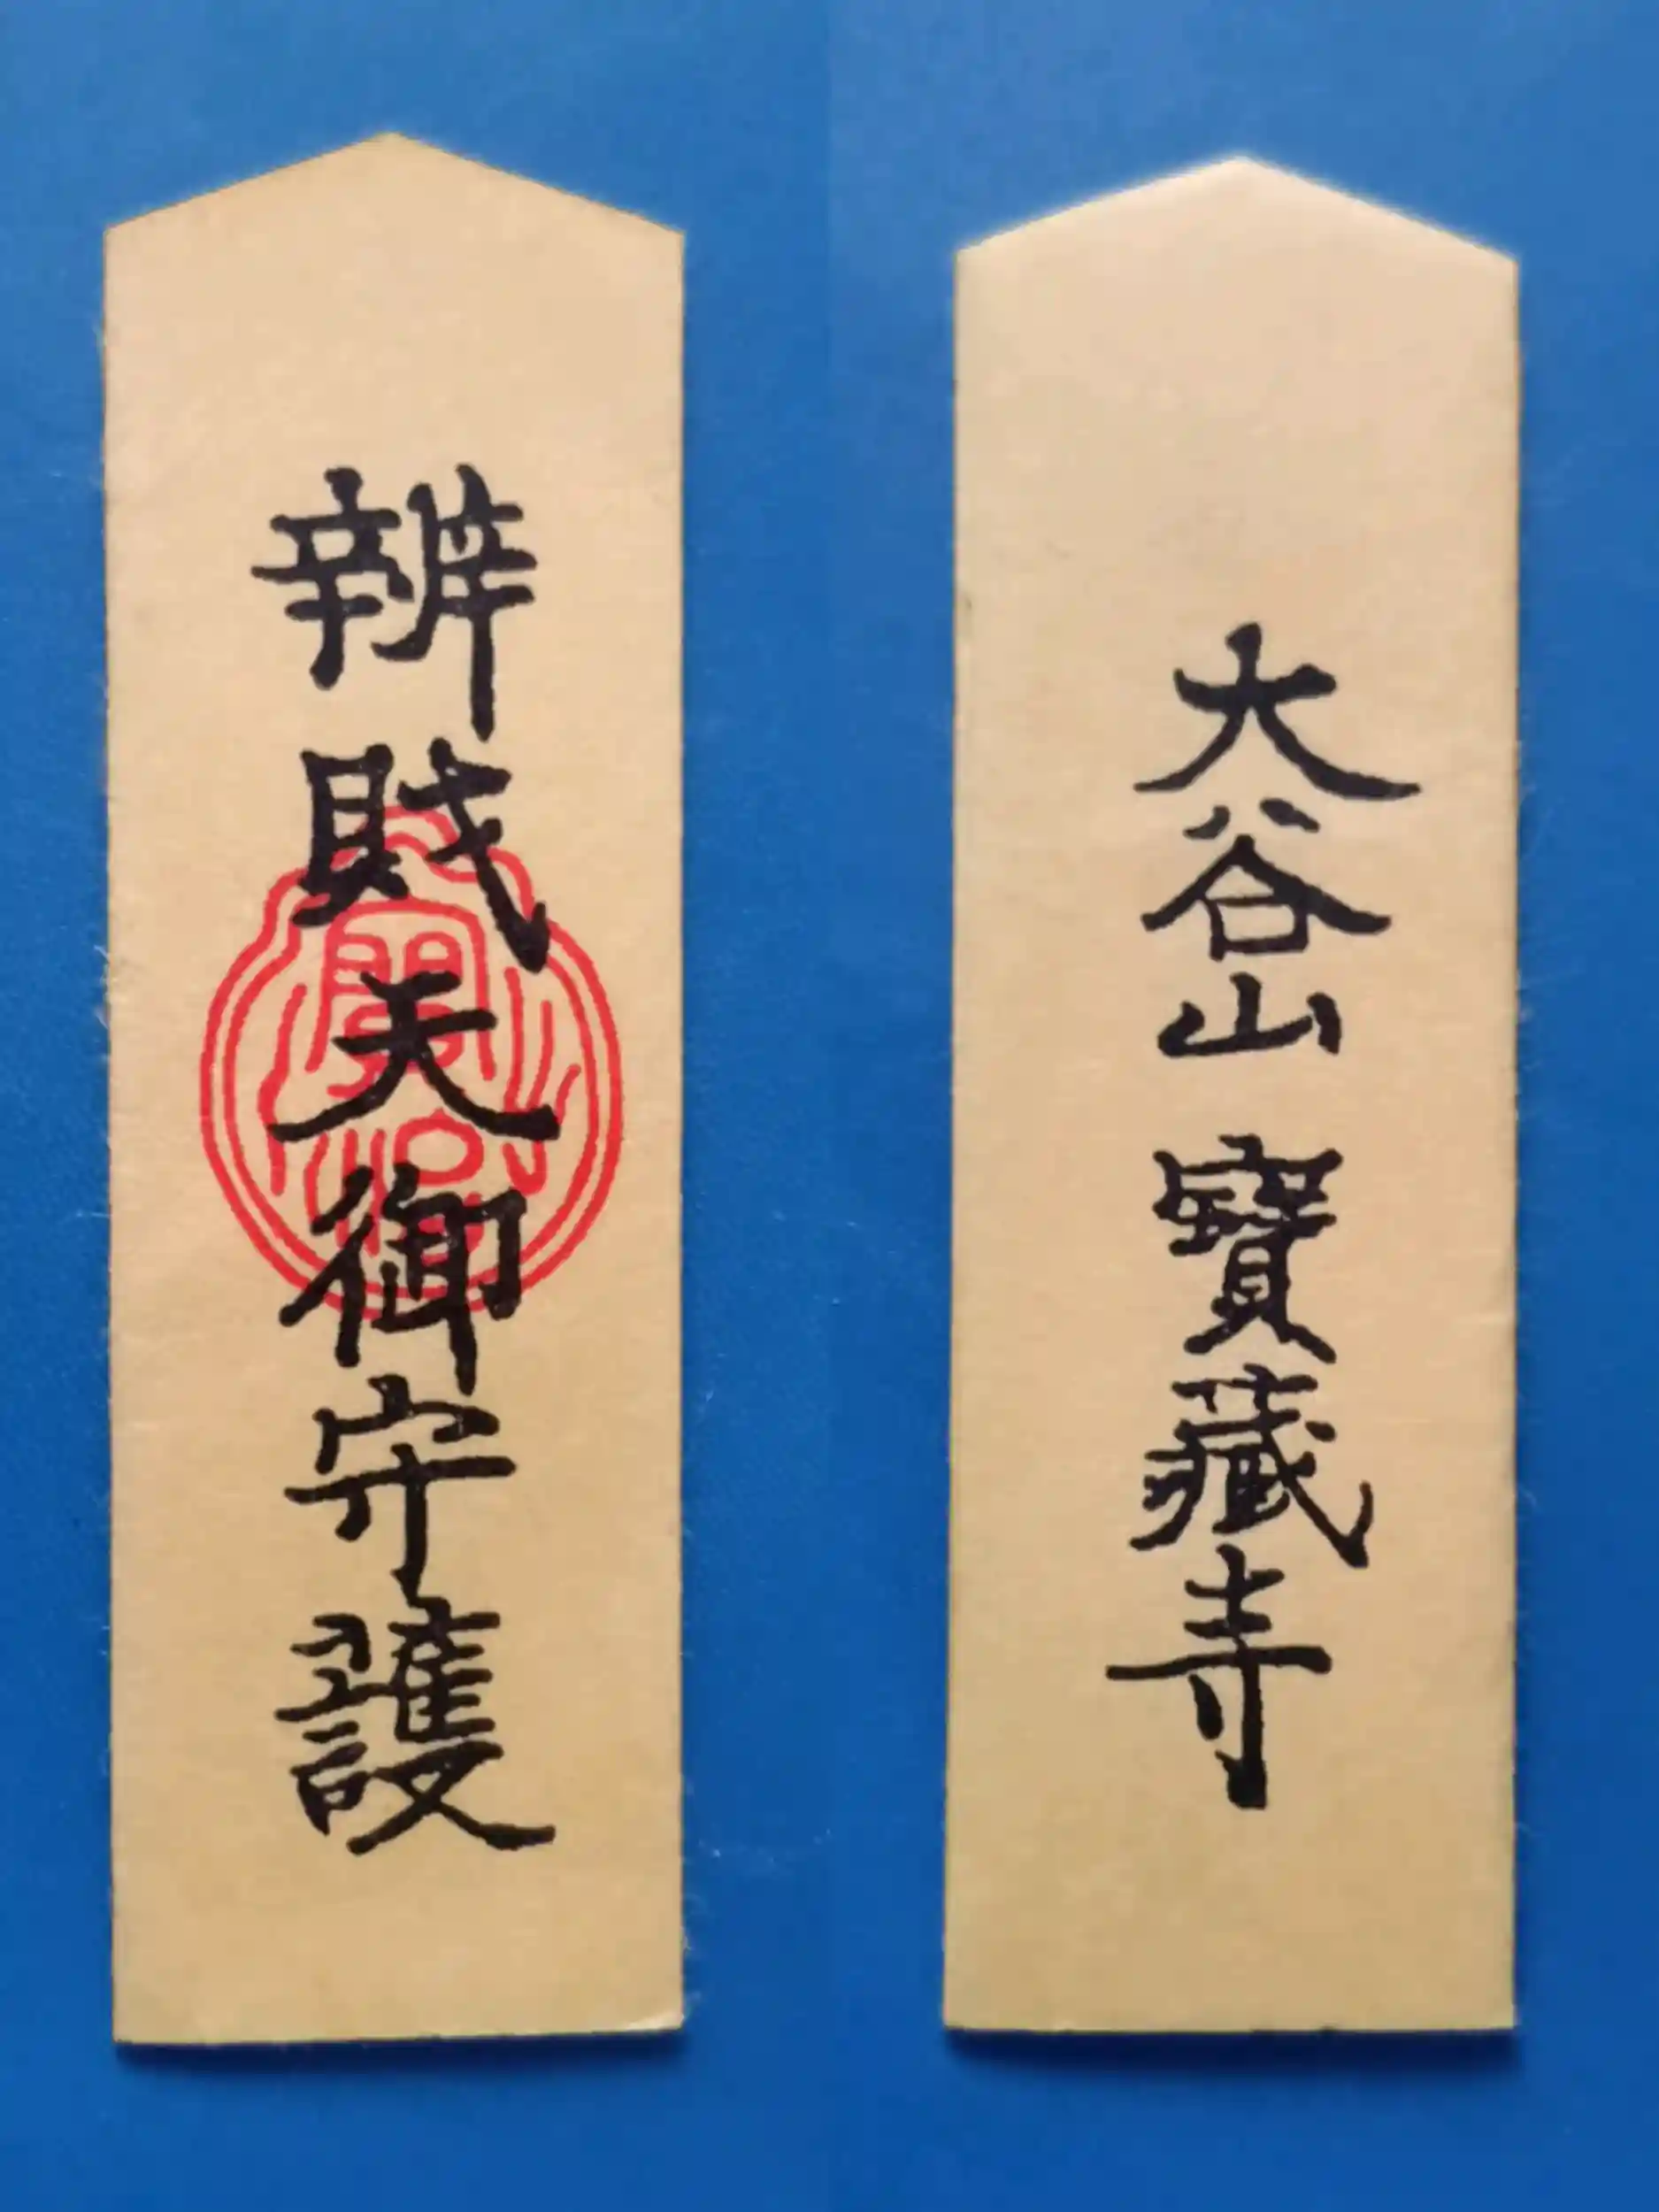 辨財天御守護
大谷山 寶藏寺